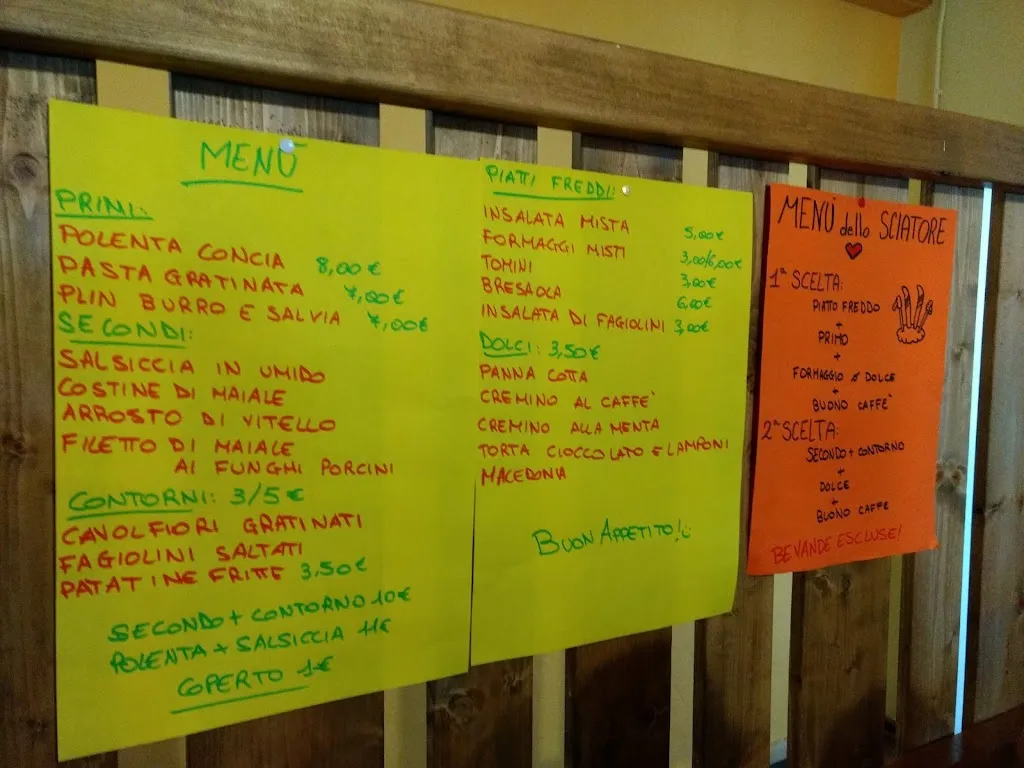 MENÙ
PRIMI:
POLENTA CONCIA 8,00€
PASTA GRATINATA 7,00€
PLIN BURRO E SALVIA 7,00€
SECONDI:
SALSICCIA IN UMIDO
COSTINE DI MAIALE
ARROSTO DI VITELLO
FILETTO DI MAIALE
AI FUNGHI PORCINI
CONTORNI: 3/5€
CAVOLFIORI GRATINATI
FAGIOLINI SALTATI
PATATINE FRITTE 3,50€
SECONDO + CONTORNO 10€
POLENTA + SALSICCIA 11€
COPERTO 1€
PIATTI FREDDI:
INSALATA MISTA 5,00€
FORMAGGI MISTI 3,00/6,00€
TOMINI 3,00€
BRESAOLA 6,00€
INSALATA DI FAGIOLINI 3,00€
DOLCI: 3,50€
PANNA COTTA
CREMINO AL CAFFE'
CREMINO ALLA MENTA
TORTA CIOCCOLATO E LAMPONI
MACEDONIA
BUON APPETITO!
MENÙ dello SCIATORE
1ª SCELTA:
PIATTO FREDDO
+
PRIMO
+
FORMAGGIO o DOLCE
+
BUONO CAFFE'
2ª SCELTA:
SECONDO + CONTORNO
+
DOLCE
+
BUONO CAFFE
BEVANDE ESCLUSE!